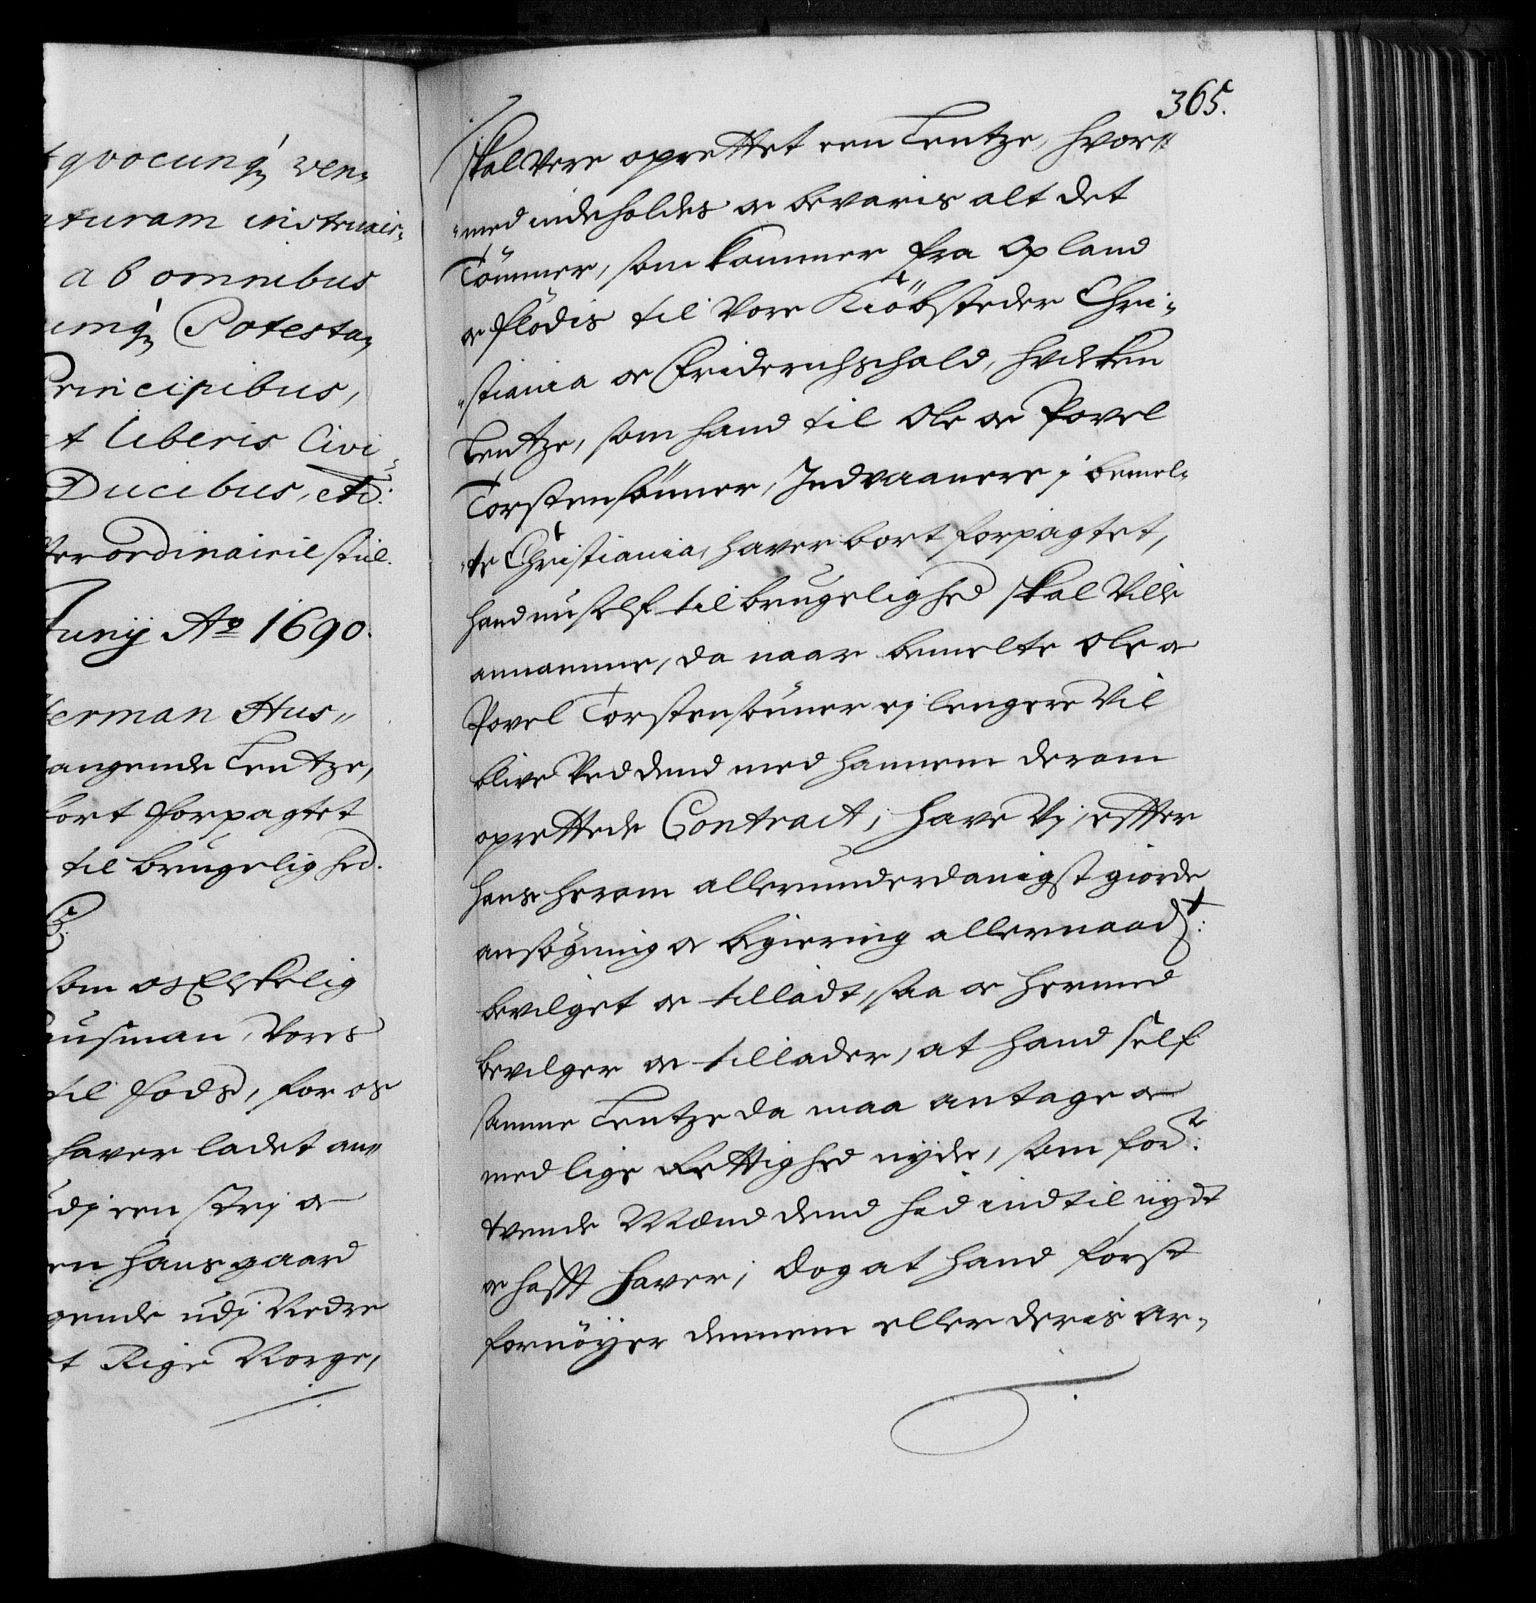 qvocunq; ven„
aturam instruxis„
ab omnibus
umq; Potesta„
Principibus,
t liberis Civi„
Ducibus, etc:
ter ordinairie stiil.
Junij Ao 1690.
Herman Hus„
angende Lentze,
bort forpagtet
til brugelighed.
som os Elskelig
ausman, Vores
til fods, for os
haver ladet an„
udj een strj oc
en hans gaard
gende udj Nedre
t Rige Norge,
365.
skal Vere oprettet een Lentze, hvor„
„med indeholdes oc bevaris alt det
Tömmer, som kommer fra Opland
oc flödis til Vore Kiöbsteder Chri„
„stiania oc Friderichshald, hvilken
Lentze, som hand til Ole oc Povel
Torstensönner, Indvaanere j bemel„
„te Christiania, haver bort forpagtet,
hand nu self til brugelighed skal Ville
annamme, da naar bemelte Ole oc
Povel Torstensönner ej lengere Vil
blive Ved dend med hannem derom
oprettede Contract; have Vj, efter
hans herom allerunderdanigst giorde
ansögning oc begiering allernaadt:
bevilget oc tilladt, saa oc hermed
bevilger oc tillader, at hand self
samme Lentze da maa antage oc
med lige Rettighed nyde, som for:
tvende Mænd dend hid indtil nydt
oc hafft haver; dog at hand först
fornöyer dennem eller deris Ar„